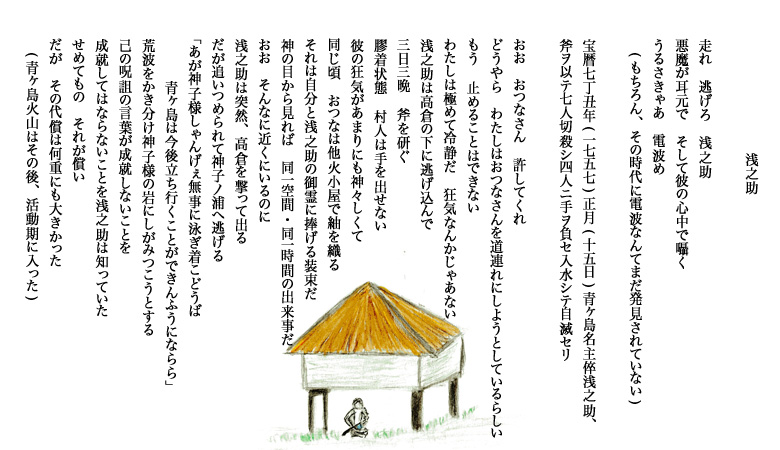 浅之助
走れ　逃げろ　浅之助
悪魔が耳元で　そして彼の心中で囁く
うるさきゃあ　電波め
(もちろん、その時代に電波なんてまだ発見されていない)
宝暦七丁丑年(一七五七)正月(十五日)青ヶ島名主倅浅之助、
斧ヲ以テ七人切殺シ四人ニ手ヲ負セ入水シテ自滅セリ
おお　おつなさん　許してくれ
どうやら　わたしはおつなさんを道連れにしようとしているらしい
もう　止めることはできない
わたしは極めて冷静だ　狂気なんかじゃあない
浅之助は高倉の下に逃げ込んで
三日三晩　斧を研ぐ
膠着状態　村人は手を出せない
彼の狂気があまりにも神々しくて
同じ頃　おつなは他火小屋で紬を織る
それは自分と浅之助の御霊に捧げる装束だ
神の目から見れば　同一空間・同一時間の出来事だ
おお　そんなに近くにいるのに
浅之助は突然、高倉を撃って出る
だが追いつめられて神子ノ浦へ逃げる
「あが神子様しゃんげぇ無事に泳ぎ着こどうば
青ヶ島は今後立ち行くことができんふうにならら」
荒波をかき分け神子様の岩にしがみつこうとする
己の呪詛の言葉が成就しないことを
成就してはならないことを浅之助は知っていた
せめてもの　それが償い
だが　その代償は何重にも大きかった
(青ヶ島火山はその後、活動期に入った)